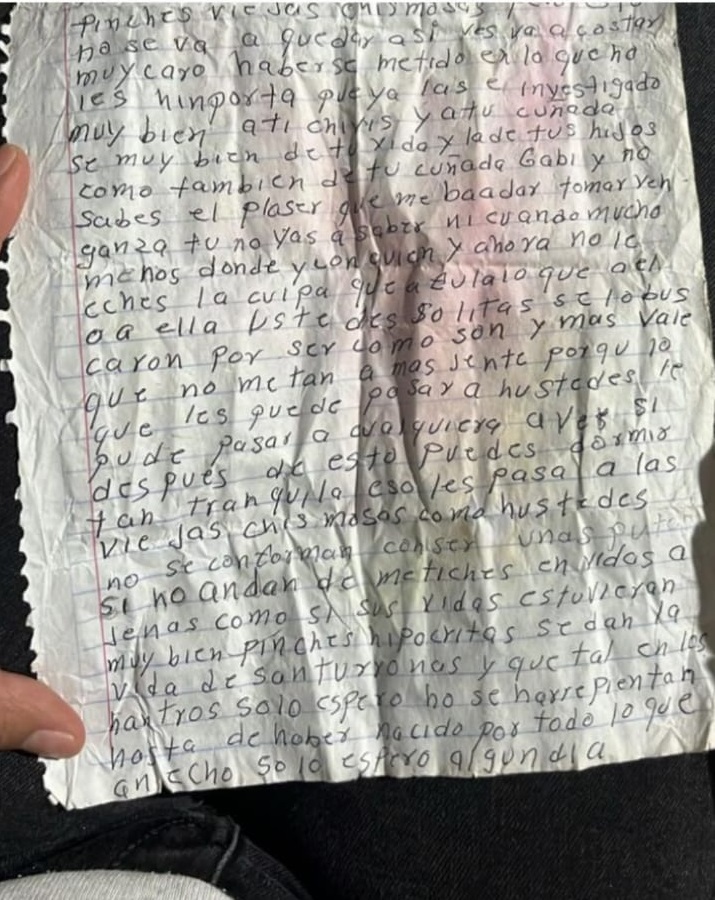 pinches viejas chismosas
no se va a quedar asi les va a costar
muy caro haberse metido en lo que no
les hinporta que ya las e investigado
muy bien a ti chivis y a tu cuñada
se muy bien de tu vida y la de tus hijos
como tambien de tu cuñada Gabi y no
sabes el plaser que me baadar tomar ven
ganza tu no vas a saber ni cuando mucho
menos donde y con quien y ahora no le
eches la culpa que a fulalo que a el
o a ella Ustedes solitas se lo bus
caron por ser como son y mas vale
que no metan a mas jente porqu lo
que les puede pasar a hustedes le
pude pasar a cualquiera aver si
despues de esto puedes dormir
tan tranquila eso les pasa a las
viejas chismosas como hustedes
no se conforman con ser unas
si no andan de metiches en vidas a
jenas como si sus vidas estuvieran
muy bien pinches hipocritas se dan la
vida de santurronas y que tal en los
hantros solo espero no se harrepientan
hasta de haber nacido por todo lo que
an echo solo espero algun dia